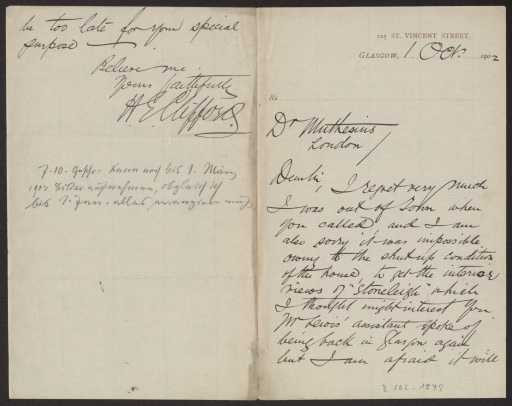 225 ST. VINCENT STREET,
GLASGOW, 1 Oct. 1902
Re
Dr Muthesius
London
Dear Sir,
I regret very much
I was out of Town when
you called, and I am
also sorry it was impossible
owing to the shut up condition
of the house, to get the interior
views of "Stoneleigh" which
I thought might interest you.
Mr Lewis' assistant spoke of
being back in Glasgow again
but I am afraid it will
be too late for your special
purpose
Believe me
Yours faithfully
H. E. Clifford.
7.10. kann noch bis 1. März